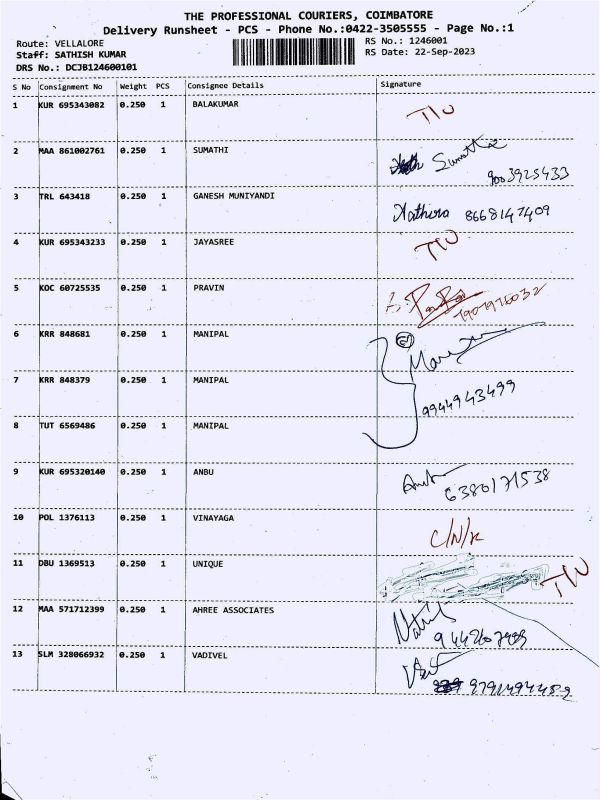 THE PROFESSIONAL COURIERS, COIMBATORE
Delivery Runsheet - PCS - Phone No.:0422-3505555 - Page No.:1
Route: VELLALORE
RS No.: 1246001
Staff: SATHISH KUMAR
RS Date: 22-Sep-2023
DRS No.: DCJB124600101
S No Consignment No Weight PCS Consignee Details Signature
1 KUR 695343082 0.250 1 BALAKUMAR
2 MAA 861002761 0.250 1 SUMATHI Sumathi
9003925433
3 TRL 643418 0.250 1 GANESH MUNIYANDI 8668147409
4 KUR 695343233 0.250 1 JAYASREE
5 KOC 60725535 0.250 1 PRAVIN 7907976032
6 KRR 848681 0.250 1 MANIPAL
7 KRR 848379 0.250 1 MANIPAL 9944943499
8 TUT 6569486 0.250 1 MANIPAL
9 KUR 695320140 0.250 1 ANBU
6380171538
10 POL 1376113 0.250 1 VINAYAGA
11 DBU 1369513 0.250 1 UNIQUE
12 MAA 571712399 0.250 1 AHREE ASSOCIATES
13 SLM 328066932 0.250 1 VADIVEL
9791494482